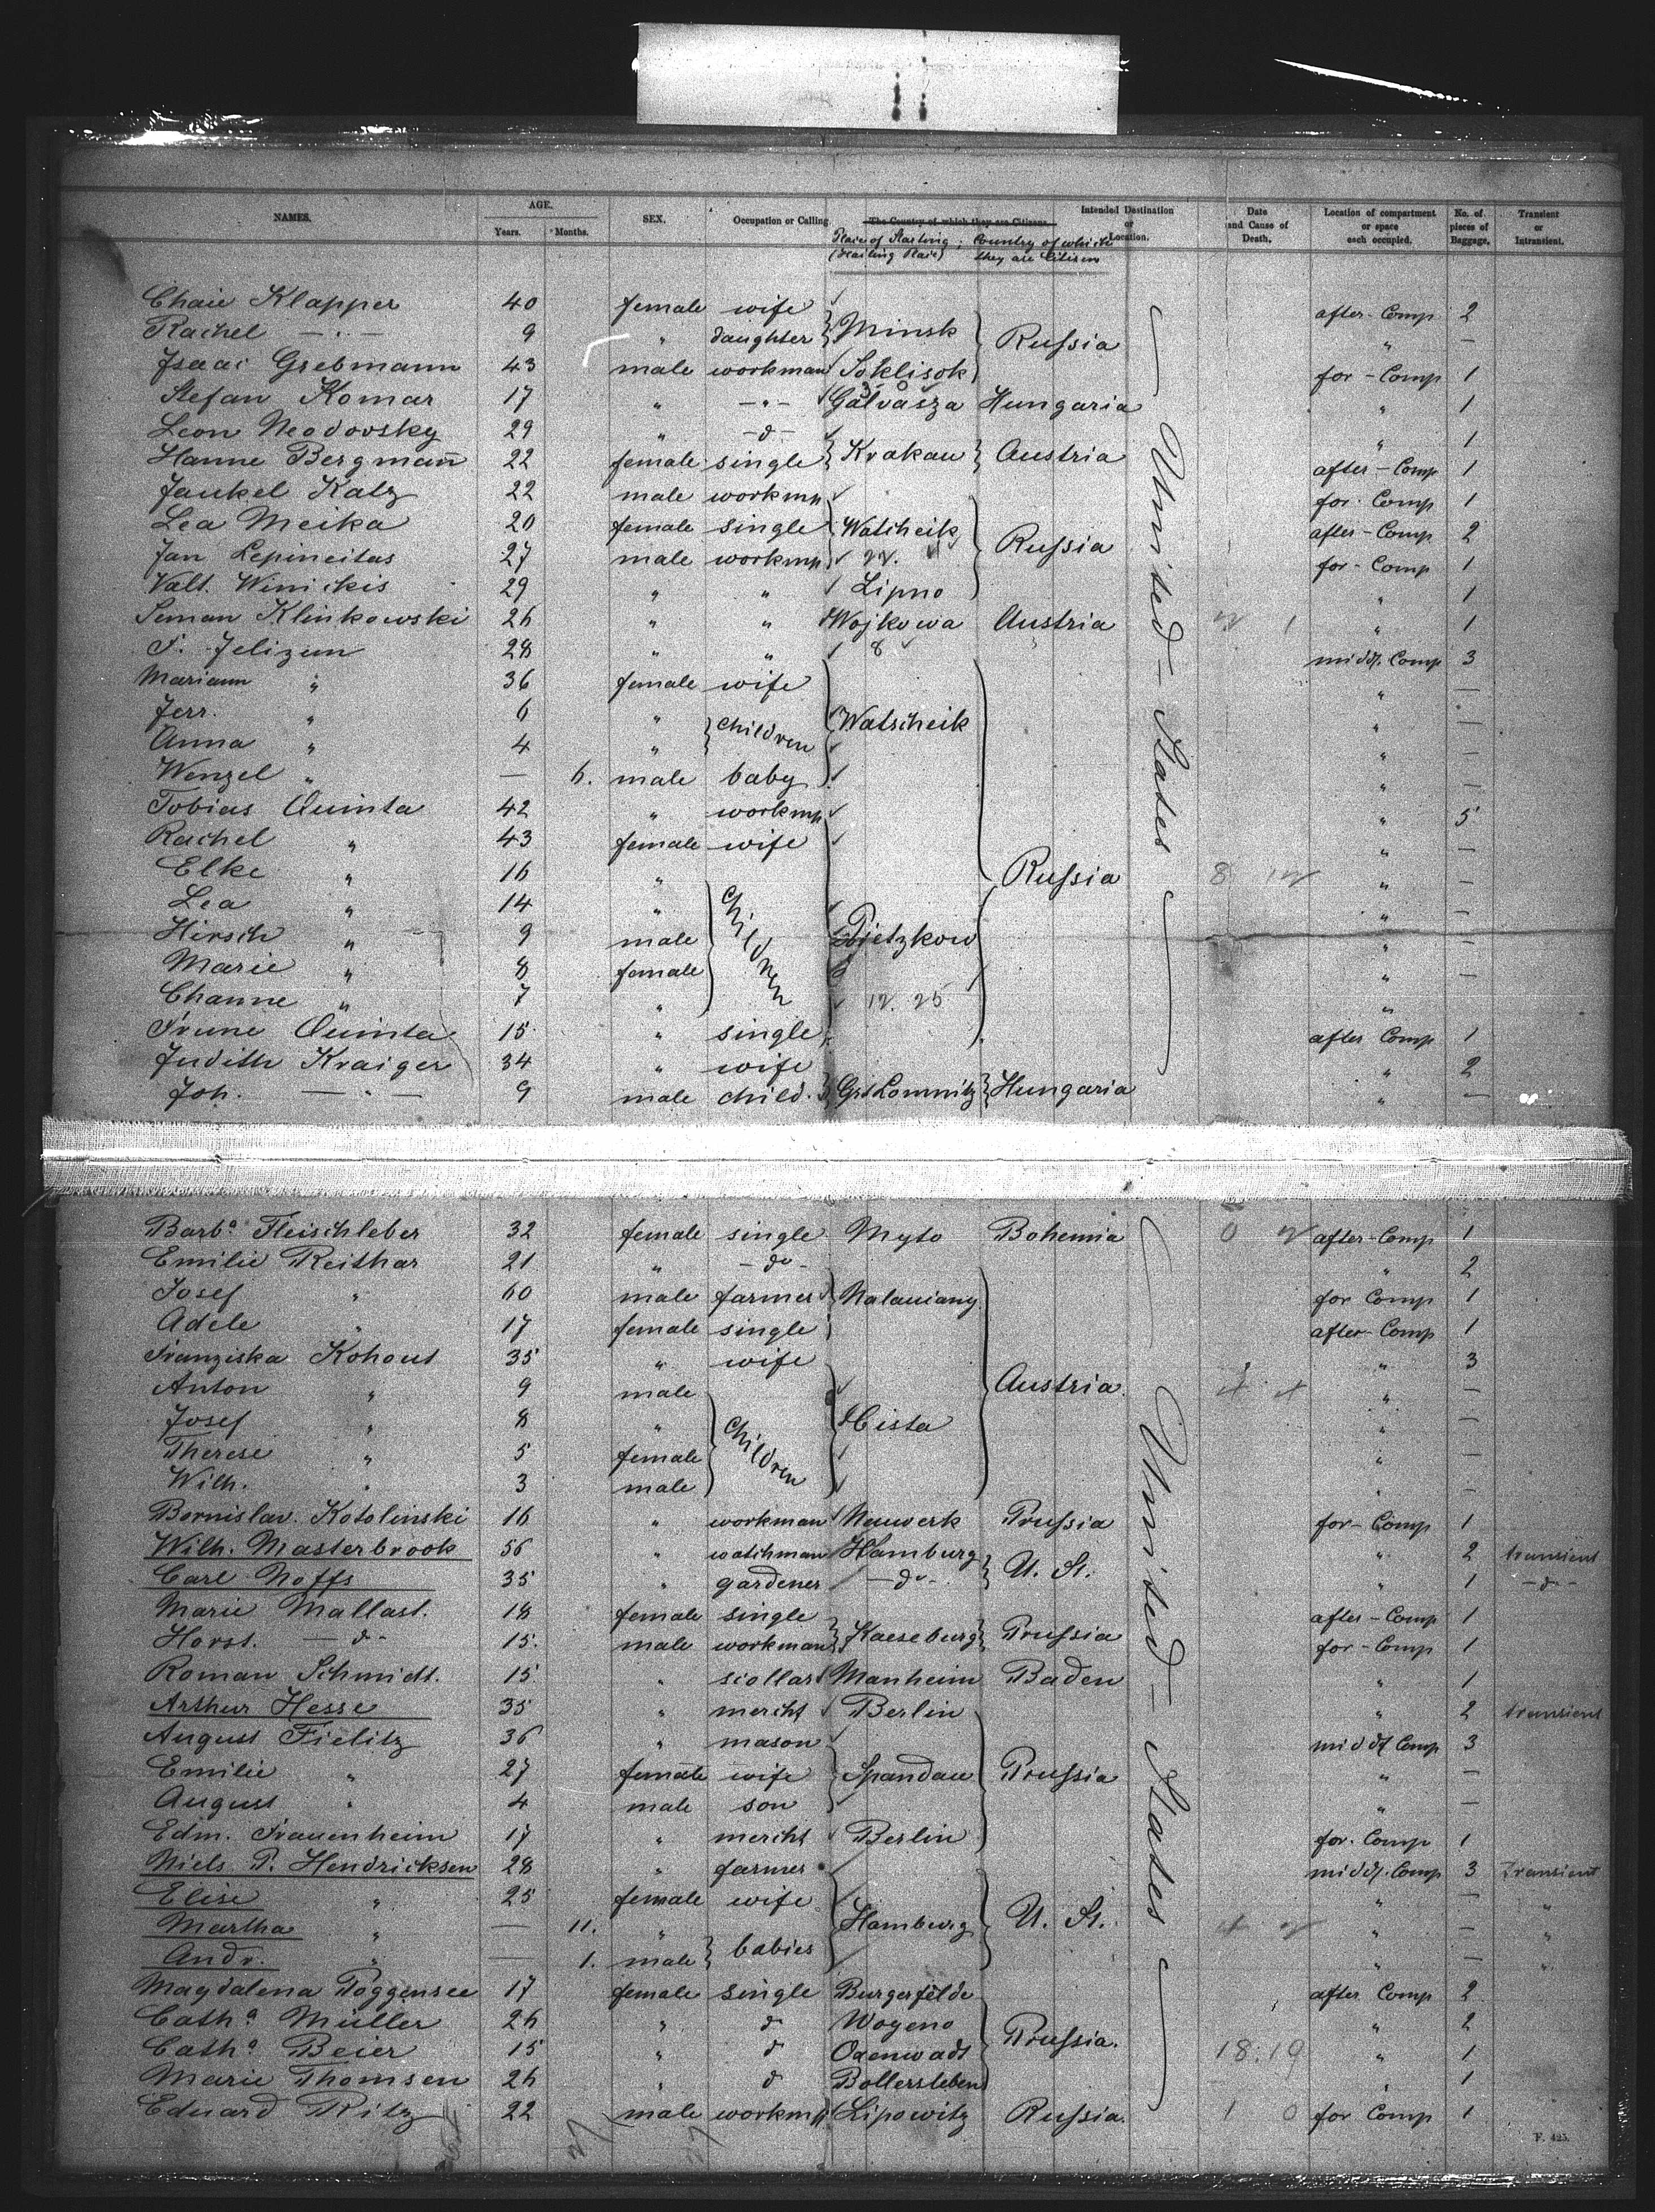 NAMES. AGE. Years. Months. SEX. Occupation or Calling. The Country of which they are Citizens. Intended Destination or Location. Date and Cause of Death. Location of compartment or space each occupied. No. of pieces of Baggage. Transient or Intransient.
Place of Starting; Country of which
(Starting Place) they are Citizen
Chaie Klapper 40 female wife after-Comp 2
Rachel — " — 9 " daughter Minsk Russia " —
Isaac Grebmann 43 male workman Soklisok for-Comp 1
Stefan Komar 17 " — " — Galvasza Hungaria " 1
Leon Neodovsky 29 " — d — " 1
Hanne Bergmann 22 female single Krakau Austria after-Comp 1
Jankel Katz 22 male workmn for-Comp 1
Lea Meika 20 female single Watscheik Russia after-Comp 2
Jan Lepineitas 27 male workmn for-Comp 1
Valt. Winickis 29 " " Lipno " 1
Seman Klinkowski 26 " " Wojkowa Austria " 1
S. Jelizun 28 " " middl. Comp 3
Mariann " 36 female wife " —
Jerr. " 6 " children Watscheik " —
Anna " 4 " " —
Wenzel " — 6. male baby " —
Tobias Quinta 42 " workmn " 5
Rachel " 43 female wife " —
Elke " 16 " Russia " —
Lea " 14 " children " —
Hirsch " 9 male Pjetzkow " —
Marie " 8 female " —
Channe " 7 " "
Frune Quinta 15 " single after Comp 1
Judith Kraiger 34 " wife " 2
Joh. — " — 9 male child. Grs Lomnitz Hungaria " —
United States
Barba Fleischleber 32 female single Myto Bohemia after-Comp 1
Emilie Reithar 21 " — do — " 2
Josef " 60 male farmer Nalauiany for Comp 1
Adele " 17 female single after-Comp 1
Franziska Kohout 35 " wife " 3
Anton " 9 male Austria. " —
Josef " 8 " children Cista " —
Therese " 5 female " —
Wilh. " 3 male " —
Bornislav. Kotolinski 16 " workman Neuwerk Prussia for-Comp 1
Wilh. Masterbrook 56 " watchman Hamburg U. St. " 2 transient
Carl Noffs 35 " gardener — do — " 1 — d —
Marie Mallast. 18 female single Kaeseburg Prussia after-Comp 1
Horst. — d — 15. male workman for-Comp 1
Roman Schmidt. 15 " scollar Manheim Baden " 1
Arthur Hesse 35 " mercht Berlin " 2 transient
August Fielitz 36 " mason middl Comp 3
Emilie " 27 female wife Spandau Prussia " —
August " 4 male son " —
Edm. Frauenheim 17 " mercht Berlin for. Comp 1
Niels P. Hendricksen 28 " farmer middl. Comp 3 Transient
Elise " 25 female wife " — "
Martha " — 11. " babies Hamburg U. St. " — "
Andr. " — 1. male " — "
Magdalena Poggensee 17 female single Burgerfelde after Comp 2
Catha Müller 26 " d Woyeno " 2
Catha Beier 15 " d Oxenwadt Prussia. " 1
Marie Thomsen 26 " d Bollersleben " 1
Eduard Ritz 22 male workmn Lipowitz Russia. for Comp 1
United States
F. 425.